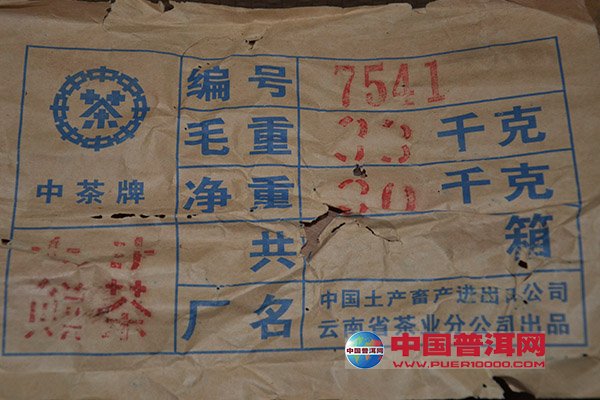 茶
中茶牌
编号 7541
毛重 33 千克
净重 30 千克
共 箱
茶
厂名 中国土产畜产进出口公司
云南省茶业分公司出品
中国普洱网
中国普洱网
www.PUER10000.COM